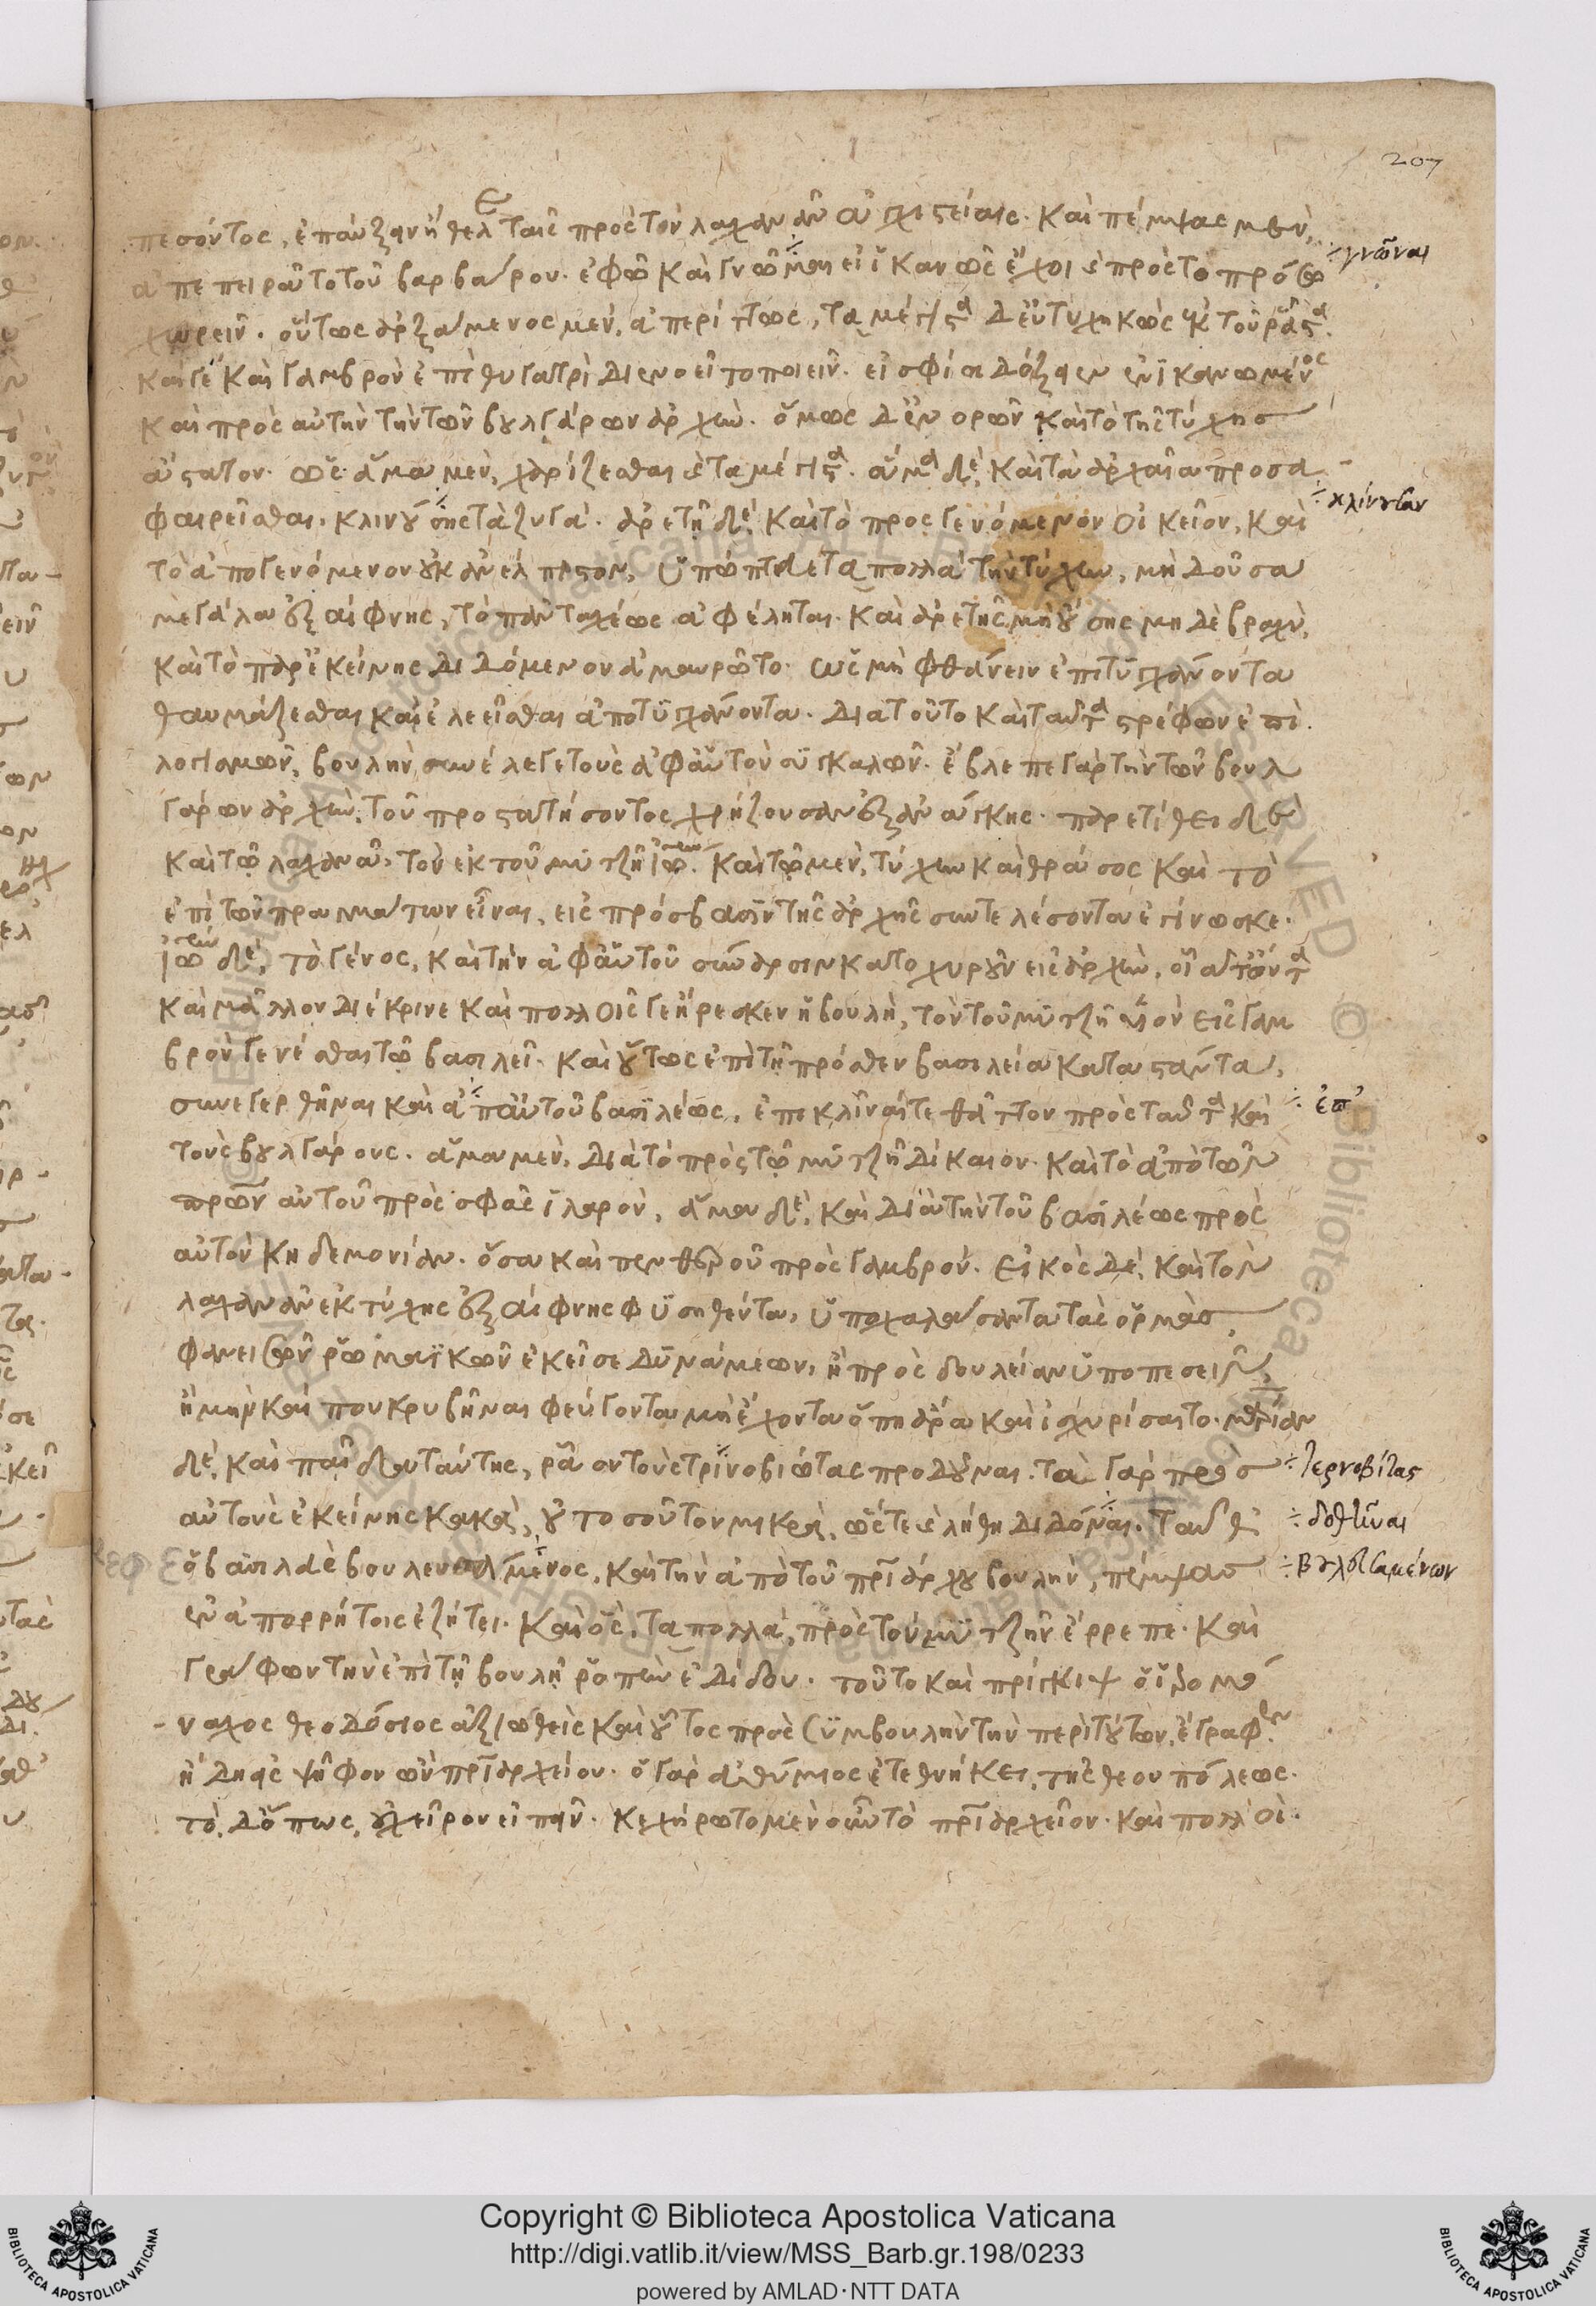 207
πεσόντος, ἐπαύξειν ἤθελε ταῖς πρὸς τὸν λαχανᾶν ἀγχιστείαις. καὶ πέμψας μὲν,
ἀπεπειρᾶτο τοῦ βαρβάρου. ἐφ᾽ ᾧ καὶ γνῶμαι εἰ ἱκανῶς ἔχοι πρὸς τὸ πρόσω
χωρεῖν. οὕτως ἀρξάμενος μὲν, ἀπερίττως, τὰ μέγιστα δ᾽ εὐτυχηκὼς ἐκ τοῦ ῥᾷστα.
καί γε καὶ γαμβρὸν ἐπὶ θυγατρὶ διενοεῖτο ποιεῖν. εἴ σφισι δόξειεν ἱκανωμένος
καὶ πρὸς αὐτὴν τὴν τῶν βουλγάρων ἀρχήν. ὅμως δ᾽ ἐνορῶν καὶ τὸ τῆς τύχης
ἄστατον. ὡς ἅμα μὲν, χαρίζεσθαι τὰ μέγιστα. ἅμα δὲ, καὶ τὰ ἀρχαῖα προσα
φαιρεῖσθαι. κλινούσης τὰ ζυγά. ἀρετῇ δὲ, καὶ τὸ προσγενόμενον οἰκεῖον, καὶ
τὸ ἀπογενόμενον οὐκ ἀνέλπιστον, ὑπώπτευε τὰ πολλὰ τὴν τύχην, μὴ δοῦσα
μεγάλα ἐξαίφνης, τὸ πᾶν ταχέως ἀφέληται. καὶ ἀρετῆς μὴ οὔσης μηδὲ βραχὺ,
καὶ τὸ παρ᾽ ἐκείνης διδόμενον ἀμαυρῶτο. ὡς μὴ φθάνειν ἐπιτυγχάνοντα
θαυμάζεσθαι καὶ ἐλεεῖσθαι ἀποτυγχάνοντα. διὰ τοῦτο καὶ ταῦτα στρέφων ἐπὶ
λογισμῶν, βουλὴν συνέλεγε τοὺς ἀφ᾽ αὑτὸν συγκαλῶν. ἔβλεπε γὰρ τὴν τῶν βουλ
γάρων ἀρχὴν, τοῦ προστατήσοντος χρήζουσαν ἐξ ἀνάγκης. παρετίθει δὲ
καὶ τῷ λαχανᾷ, τὸν ἐκ τοῦ μυτζῆ ἰω. καὶ τῷ μὲν, τύχην καὶ θράσος καὶ τὸ
ἐπὶ τῶν πραγμάτων εἶναι, εἰς πρόσβασιν τῆς ἀρχῆς συντελέσοντα ἐγίνωσκε.
ἰω δὲ, τὸ γένος, καὶ τὴν ἀφ᾽ αὑτοῦ συνάρσιν κατοχυροῦν εἰς ἀρχὴν,
καὶ μᾶλλον διέκρινε καὶ πολλοῖς γε ἤρεσκεν ἡ βουλὴ, τὸν τοῦ μυτζῆ υἱὸν εἰς γαμ
βρὸν γενέσθαι τῷ βασιλεῖ. καὶ οὕτως ἐπὶ τῇ πρόσθεν βασιλείᾳ καταστάντα,
συνεγερθῆναι καὶ ἀπ᾽ αὐτοῦ βασιλέως, ἐπικλῖναί τε θᾶττον πρὸς ταῦτα καὶ
τοὺς βουλγάρους. ἅμα μὲν, διὰ τὸ πρὸς τῷ μυτζῇ δίκαιον. καὶ τὸ ἀπὸ τῶν
πρῶν αὐτοῦ πρὸς σφᾶς ἱλαρὸν, ἅμα δὲ, καὶ διὰ τὴν τοῦ βασιλέως πρὸς
αὐτὸν κηδεμονίαν. ὅσα καὶ πενθεροῦ πρὸς γαμβρόν. εἰκὸς δὲ, καὶ τὸν
λαχανᾶν ἐκ τύχης ἐξαίφνης φυσηθέντα, ὑποχαλάσαντα τὰς ὁρμὰς,
φανεισῶν ῥωμαϊκῶν ἐκεῖσε δυνάμεων, ἢ πρὸς δουλείαν ὑποπεσεῖν,
ἢ μὴν καί που κρυβῆναι φεύγοντα μὴ ἔχοντα ὅπῃ ἄρα καὶ ἰσχυρίσαιτο. μαρίαν
δὲ, καὶ παῖδα ταύτης, ῥᾷον τοὺς τρινοβιώτας προδοῦναι. τὰ γὰρ πρὸς
αὐτοὺς ἐκείνης κακὰ, οὐ τοσοῦτον μικρὰ, ὥστε λήθῃ διδόναι. ταῦθ᾽
ὁ βασιλεὺς βουλευσάμενος, καὶ τὴν ἀπὸ τοῦ πριάρχου βουλὴν, πέμψας
ἐν ἀπορρήτοις ἐζήτει. καὶ ὃς, τὰ πολλὰ, πρὸς τὸν μυτζῆν ἔρρεπε. καὶ
γράφων τὴν ἐπὶ τῇ βουλῇ ῥοπὴν ἐδίδου. τοῦτο καὶ πρίγκιψ ὁ ἱερομό
ναχος θεοδόσιος ἀξιωθεὶς καὶ οὗτος πρὸς συμβουλὴν τὴν περὶ τούτων, ἔγραφεν.
ἤδη εἰς ψῆφον ὢν πριαρχείου. ὁ γὰρ εὐθύμιος ἐτεθνήκει, τῆς θεουπόλεως.
τὸ, δ᾽ ὅπως, οὐ χεῖρον εἰπεῖν. κεχήρωτο μὲν οὖν τὸ πριαρχεῖον. καὶ πολλοὶ.
÷ γνῶναι
÷ κλίνουσαν
÷ ἐπ᾽
÷ τερνοβίτας
÷ δοθῆναι
÷ βουλευσαμένων
Copyright © Biblioteca Apostolica Vaticana
http://digi.vatlib.it/view/MSS_Barb.gr.198/0233
powered by AMLAD·NTT DATA
BIBLIOTECA APOSTOLICA VATICANA
BIBLIOTECA APOSTOLICA VATICANA